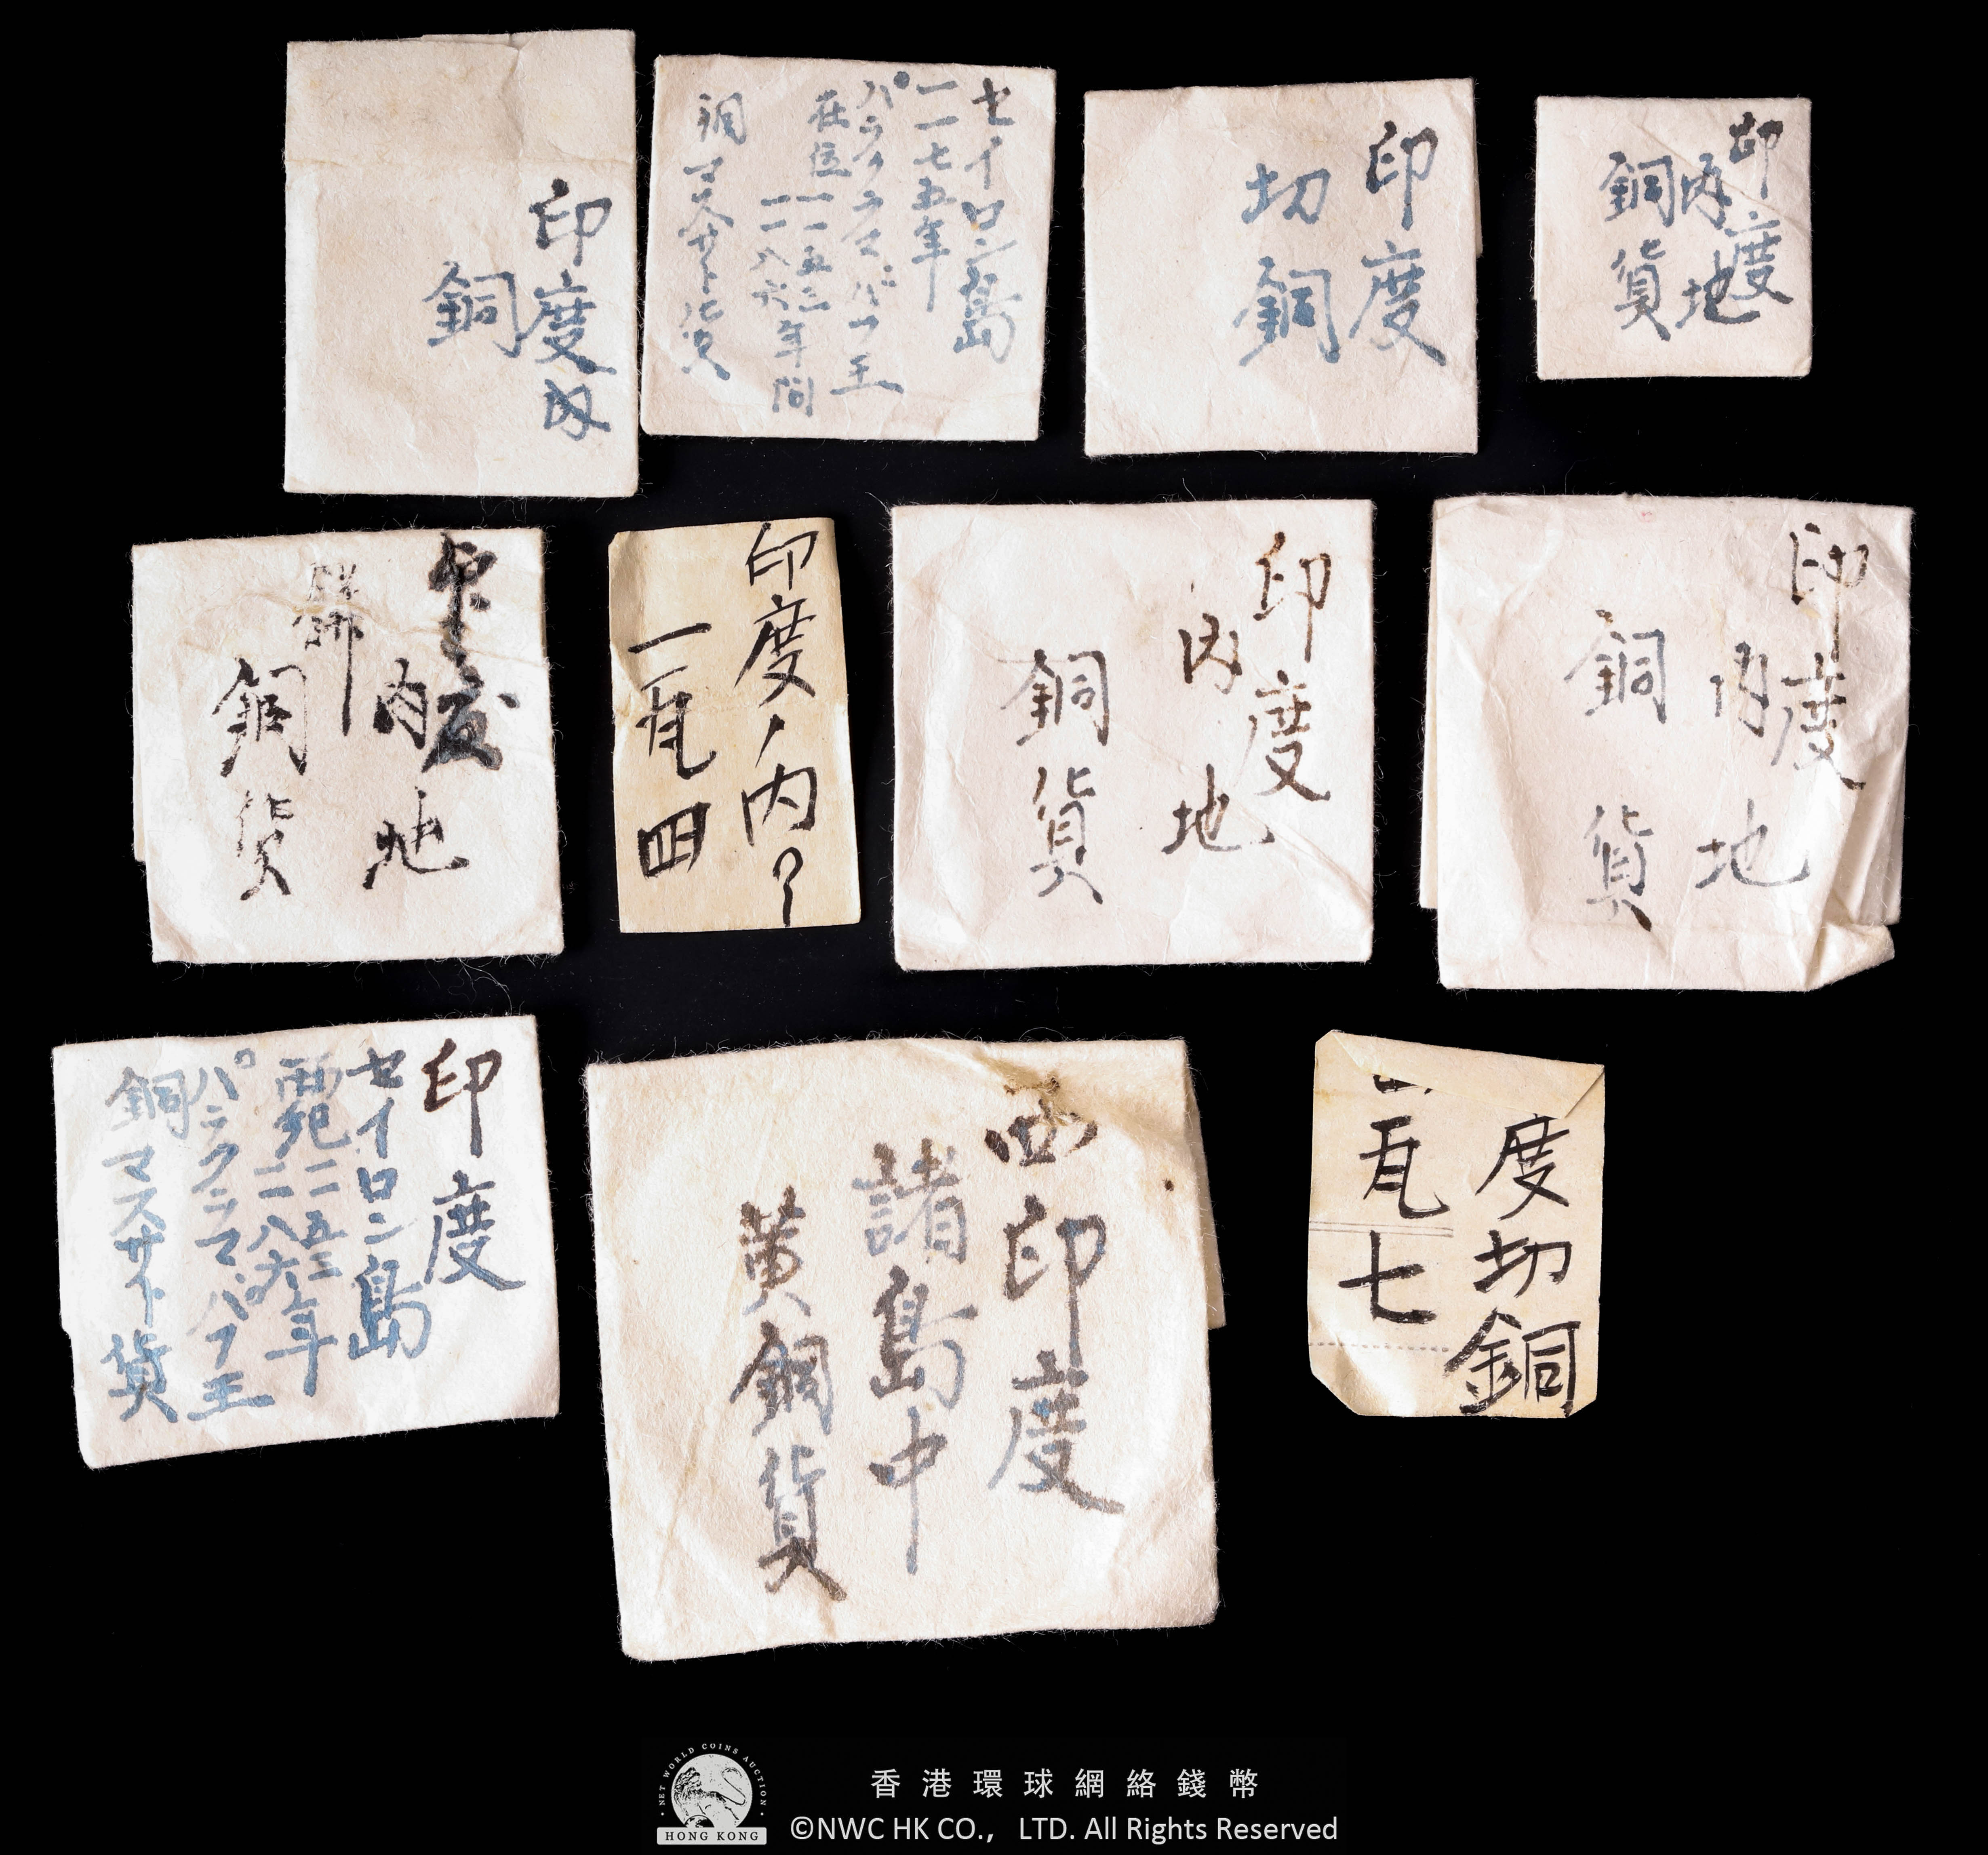 印度内
銅
セイロン島
一一七五年
パラクラマバフ王
在位一一五三
一一八六年間
銅マスサト貨
印度
切銅
印度
内地
銅貨
内地
銅貨
印度ノ内?
一瓦四
印度
内地
銅貨
印度
内地
銅貨
印度
セイロン島
一一五三年
一一八六
パラクラマバフ王
銅マスサト貨
西印度
諸島中
黄銅貨
度切銅
瓦七
NET WORLD COINS AUCTION
HONG KONG
香港環球網絡錢幣
©NWC HK CO., LTD. All Rights Reserved